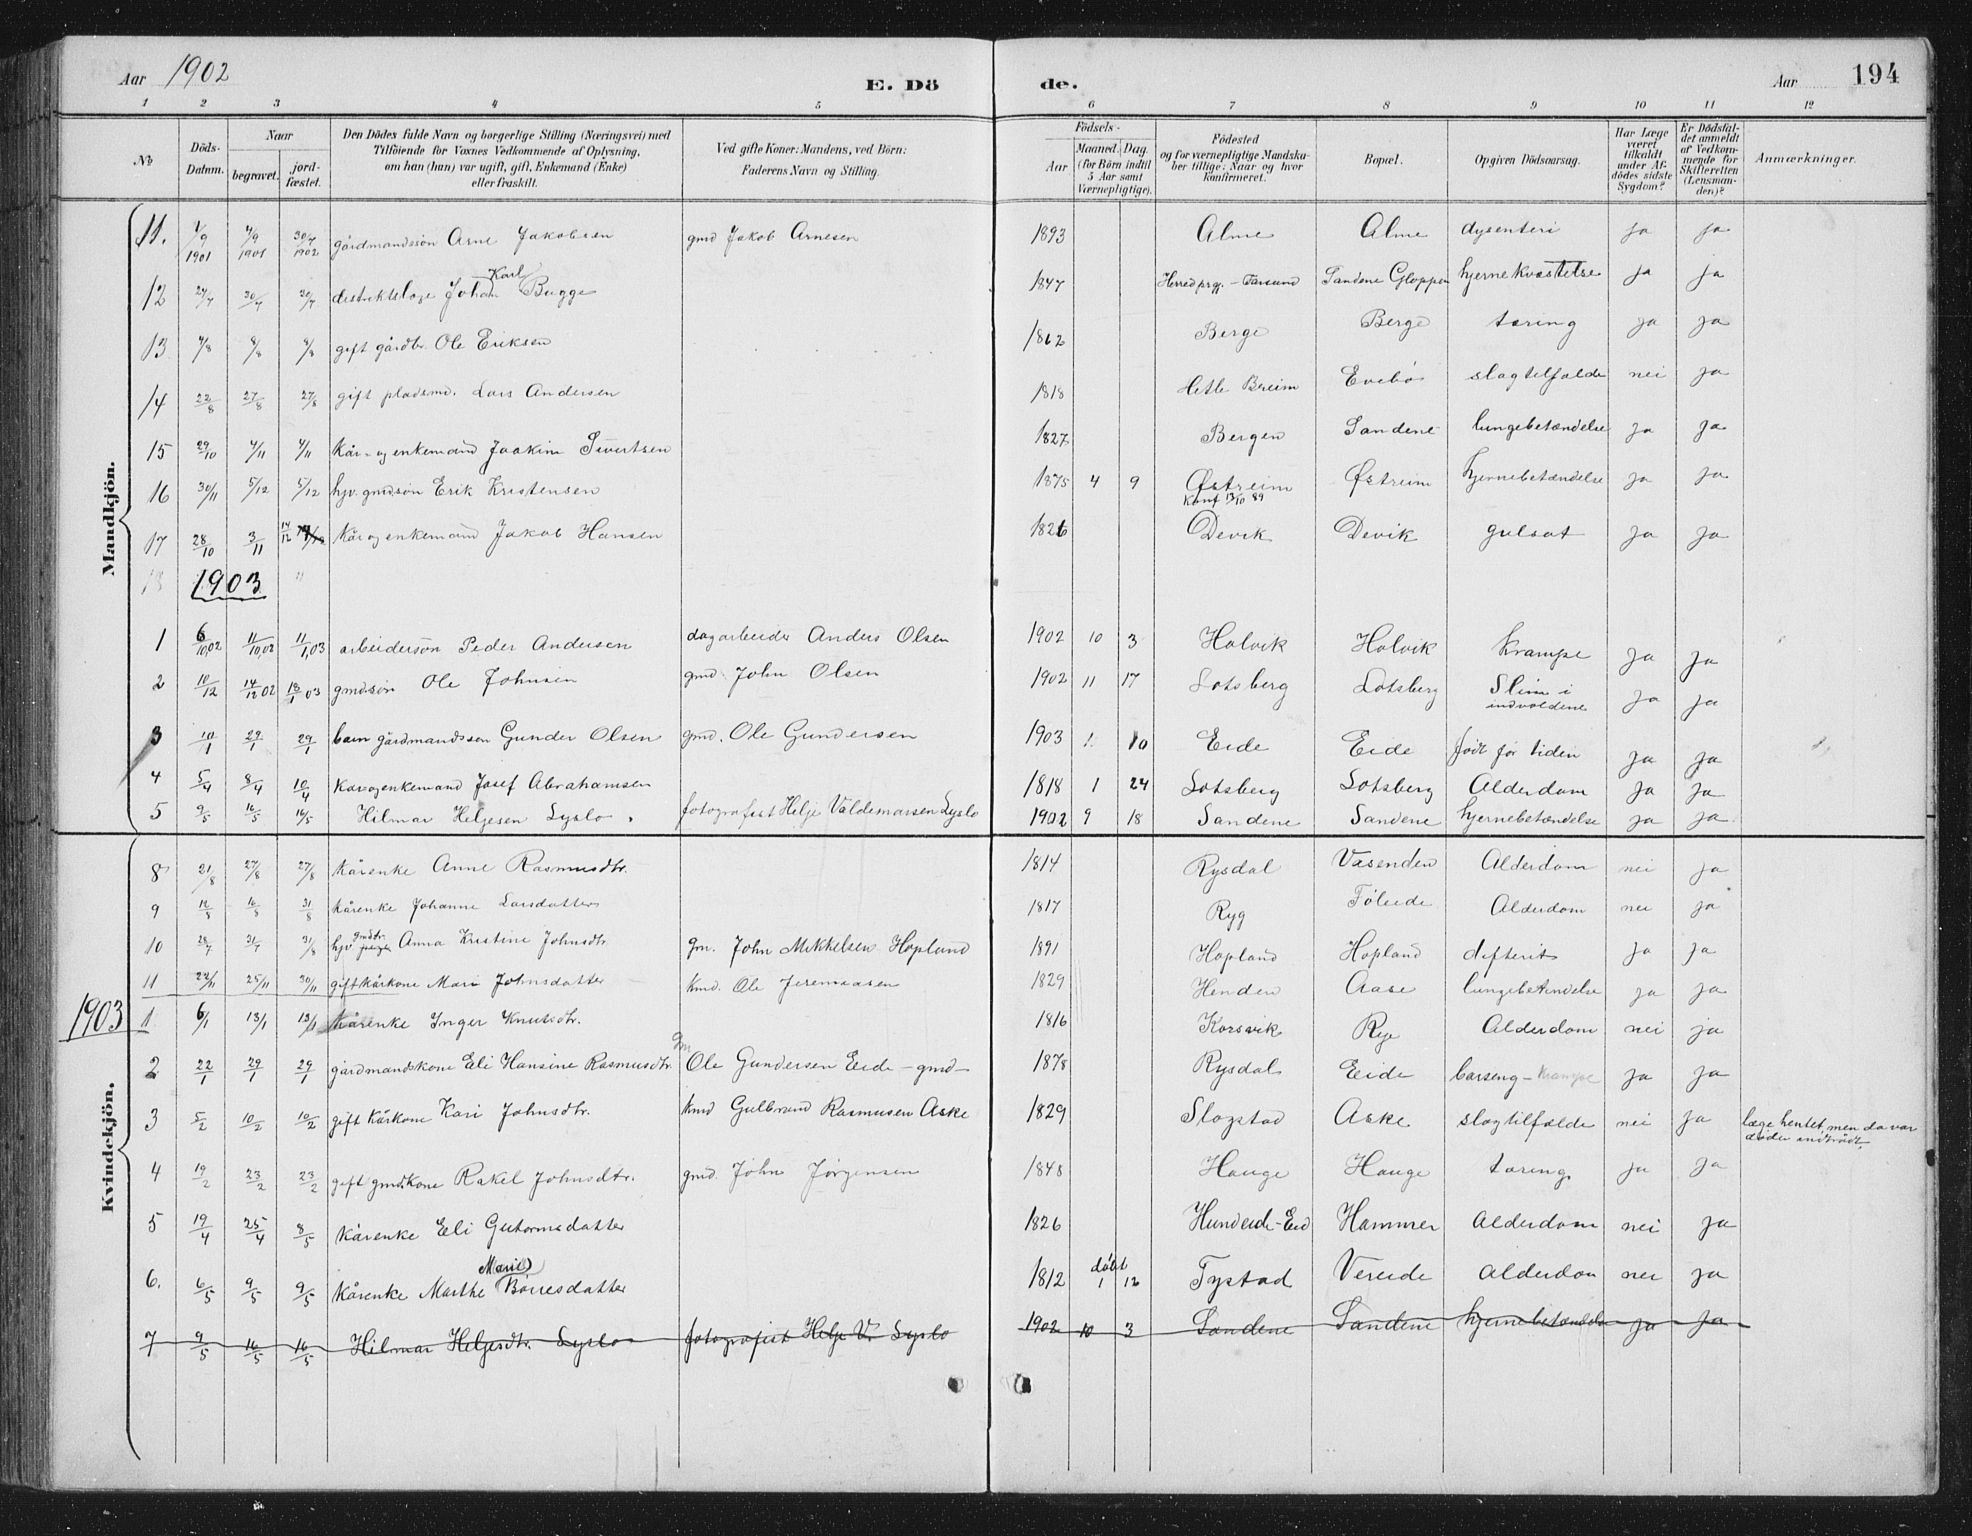 Aar 1902 E. Dö de. Aar 194
1 2 3 4 5 6 7 8 9 10 11 12
No
Döds-
Datum.
Naar
begravet.
jord-
fæstet.
Den Dödes fulde Navn og borgerlige Stilling (Næringsvei) med
Tilföiende for Voxnes Vedkommende af Oplysning,
om han (hun) var ugift, gift, Enkemand (Enke)
eller fraskilt.
Ved gifte Koner: Mandens, ved Börn:
Faderens Navn og Stilling.
Födsels-
Aar
Maaned. Dag.
(for Börn indtil
5 Aar samt
Værnepligtige).
Födested
og for værnepligtige Mandska-
ber tillige: Naar og hvor
konfirmeret.
Bopæl.
Opgiven Dödsaarsag.
Har Læge
været
tilkaldt
under Af-
dödes sidste
Sygdom?
Er Dödsfal-
det anmeldt
af Vedkom-
mende for
Skifteretten
(Lensman-
den)?
Anmærkninger.
Mandkjön.
11. 1/9 1901 4/9 1901 30/7 1902 gårdmandssøn Arne Jakobsen gmd Jakob Arnesen 1893 Alme Alme dysenteri ja ja
Karl
12 24/7 30/7 30/7 distriktslæge Johan Bugge 1847 Herred prgj. - Farsund Sandene Gloppen hjernekvæstelse ja ja
13 4/8 8/8 8/8 gift gårdbr. Ole Eriksen 1862 Berge Berge tæring ja ja
14 22/8 27/8 27/8 gift pladsmd. Lars Andersen 1818 Hetle Breim Evebø slagtilfælde nei ja
15 29/10 4/11 4/11 kår- og enkemand Joakim Sivertsen 1827 Bergen Sandene lungebetændelse ja ja
16 30/11 5/12 5/12 hjv. gmdsøn Erik Kristensen 1875 4 9 Østreim Østreim hjernebetændelse ja ja
Konf 13/10 89
17 28/10 3/11 14/12 kår og enkemand Jakob Hansen 1826 Devik Devik gulsot ja ja
18 1903 "
1 6/10,02 11/10,02 11/1,03 arbeidersøn Peder Andersen dagarbeider Anders Olsen 1902 10 3 Holvik Holvik Krampe ja ja
2 10/12 14/12 02 18/1 03 gmdsøn Ole Johnsen gmd. John Olsen 1902 11 17 Lotsberg Lotsberg Slim i ja ja
indvoldene
3 10/1 29/1 29/1 barn gårdmandssøn Gunder Olsen gmd. Ole Gundersen 1903 1. 10 Eide Eide født før tiden ja ja
4 5/4 8/4 10/4 kår og enkemand Josef Abrahamsen 1818 1 24 Lotsberg Lotsberg Alderdom ja ja
5 9/5 16/5 16/5 Hilmar Helgesen Lyslo. fotografist Helje Valdemarsen Lyslo 1902 9 18 Sandene Sandene hjernebetændelse ja ja
Kvindekjön.
8 21/8 27/8 27/8 kårenke Anne Rasmusdtr. 1814 Rysdal Vasenden Alderdom nei ja
9 12/8 16/8 31/8 kårenke Johanne Larsdatter 1817 Ryg Føleide Alderdom nei ja
gmdtr.
10 28/7 31/7 31/8 hjv Anna Kristine Johnsdtr. gm. John Mikkelsen Hopland 1891 Hopland Hopland difterit ja ja
11 22/11 25/11 30/11 gift kårkone Mari Johnsdatter kmd. Ole Jeremiasen 1829 Henden Aase lungebetændelse ja ja
1903 1 6/1 13/1 13/1 kårenke Inger Knutsdtr. 1816 Korsvik Ryg Alderdom nei ja
2 22/1 29/1 29/1 gårdmandskone Eli Hansine Rasmusdtr. gm Ole Gundersen Eide - gmd - 1878 Rysdal Eide barseng - krampe ja ja
3 5/2 10/2 10/2 gift kårkone Kari Johnsdtr. kmd Gulbrand Rasmusen Aske 1829 Slogstad Aske slagtilfælde nei ja læge hentet, men da var
døden indtrådt
4 19/2 23/2 23/2 gift gmdkone Rakel Johnsdtr. gmd. John Jørgensen 1848 Hauge Hauge tæring ja ja
5 19/4 25/4 8/5 kårenke Eli Gutormsdatter 1826 Hundeide - Eid Hammer Alderdom nei ja
Marie døbt
6. 6/5 9/5 9/5 kårenke Marthe Børresdatter 1812 1 12 Tystad Vereide Alderdom nei ja
7 9/5 16/5 16/5 Hilmar Helgesdtr. Lyslo fotografist Helje V. Lyslo 1902 10 3 Sandene Sandene hjernebetændelse ja ja